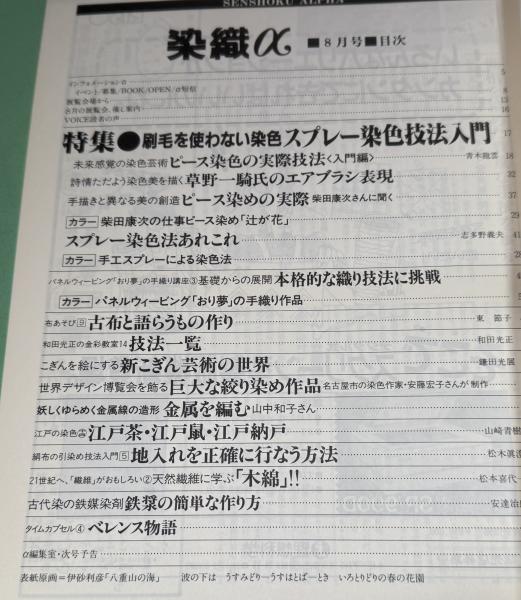 SENSHOKU ALPHA
染織α ■8月号■目次
インフォメーションα 5
イベント/募集/BOOK/OPEN/α短信 8
展覧会場から 13
8月の展覧会、催し案内 16
VOICE読者の声
特集●刷毛を使わない染色スプレー染色技法入門 17
未来感覚の染色芸術ピース染色の実際技法〈入門編〉 青木龍雲 18
詩情ただよう染色美を描く草野一騎氏のエアブラシ表現 32
手描きと異なる美の創造ピース染めの実際 柴田康次さんに聞く 37
カラー 柴田康次の仕事ピース染め「辻が花」 29
スプレー染色法あれこれ 志多野義夫 41
カラー 手工スプレーによる染色法 28
パネルウィービング「おり夢」の手織り講座③基礎からの展開 本格的な織り技法に挑戦
カラー パネルウィービング「おり夢」の手織り作品
布あそび⑨古布と語らうもの作り 東 節子
和田光正の金彩教室14 技法一覧 和田光正
こぎんを絵にする新こぎん芸術の世界 鎌田光展
世界デザイン博覧会を飾る巨大な絞り染め作品 名古屋市の染色作家・安藤宏子さんが制作
妖しくゆらめく金属線の造形 金属を編む 山中和子さん
江戸の染色 江戸茶・江戸鼠・江戸納戸 山崎青樹
絹布の引染め技法入門⑤ 地入れを正確に行なう方法 松木眞澄
21世紀へ、「繊維」がおもしろい② 天然繊維に学ぶ「木綿」!! 松本喜代
古代染の鉄媒染剤 鉄漿の簡単な作り方 安達治
タイムカプセル④ ベレンス物語
α編集室・次号予告
表紙原画=伊砂利彦「八重山の海」 波の下は うすみどり―うすはとば―とき いろとりどりの春の花園